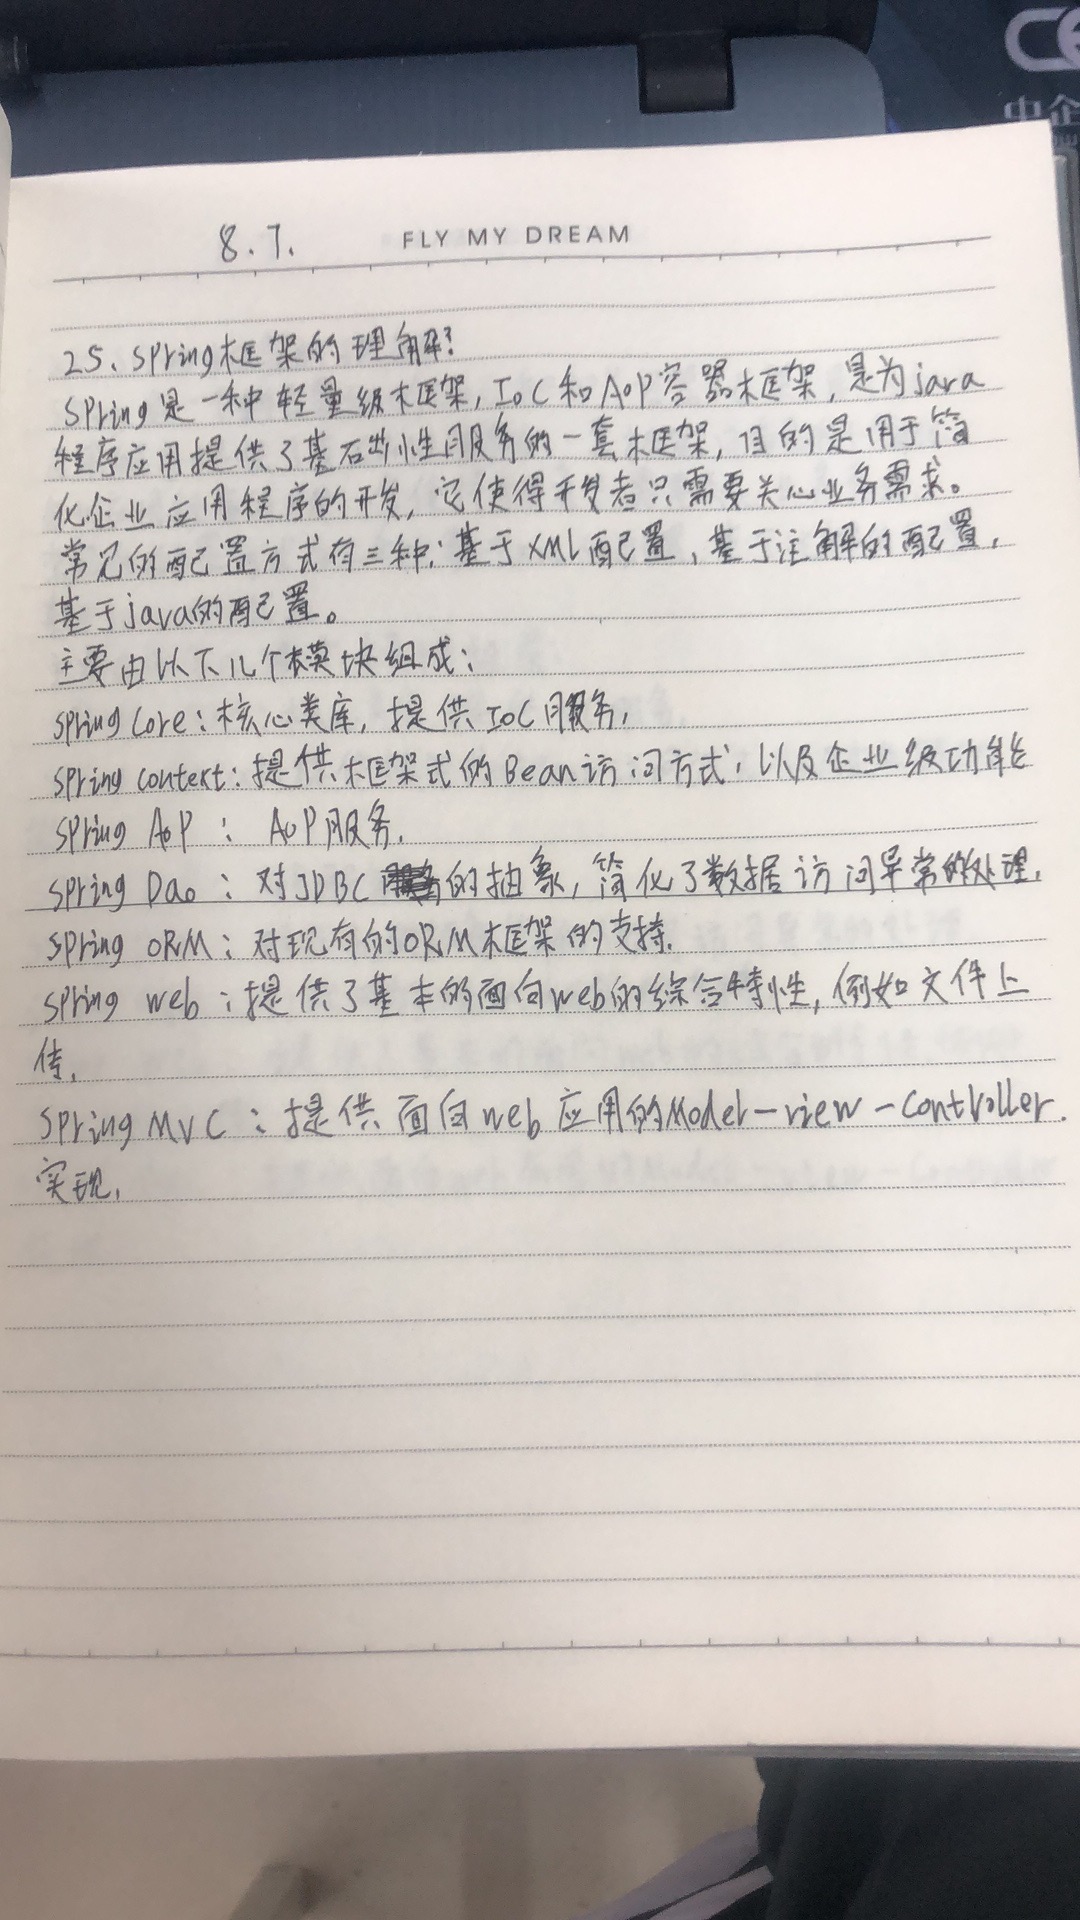 CE
中企
8.7.
FLY MY DREAM
25、Spring框架的理解?
Spring是一种轻量级框架,IoC和AoP容器框架,是为java
程序应用提供了基础性服务的一套框架,目的是用于简
化企业应用程序的开发,它使得开发者只需要关心业务需求。
常见的配置方式有三种:基于XML配置,基于注解的配置,
基于java的配置。
主要由以下几个模块组成:
Spring Core:核心类库,提供IoC服务,
Spring context:提供框架式的Bean访问方式,以及企业级功能
Spring AoP : AoP服务.
Spring Dao : 对JDBC的抽象,简化了数据访问异常的处理.
Spring ORM:对现有的ORM框架的支持.
Spring web :提供了基本的面向web的综合特性,例如文件上
传.
Spring MVC :提供面向web应用的Model-view-Controller.
实现,